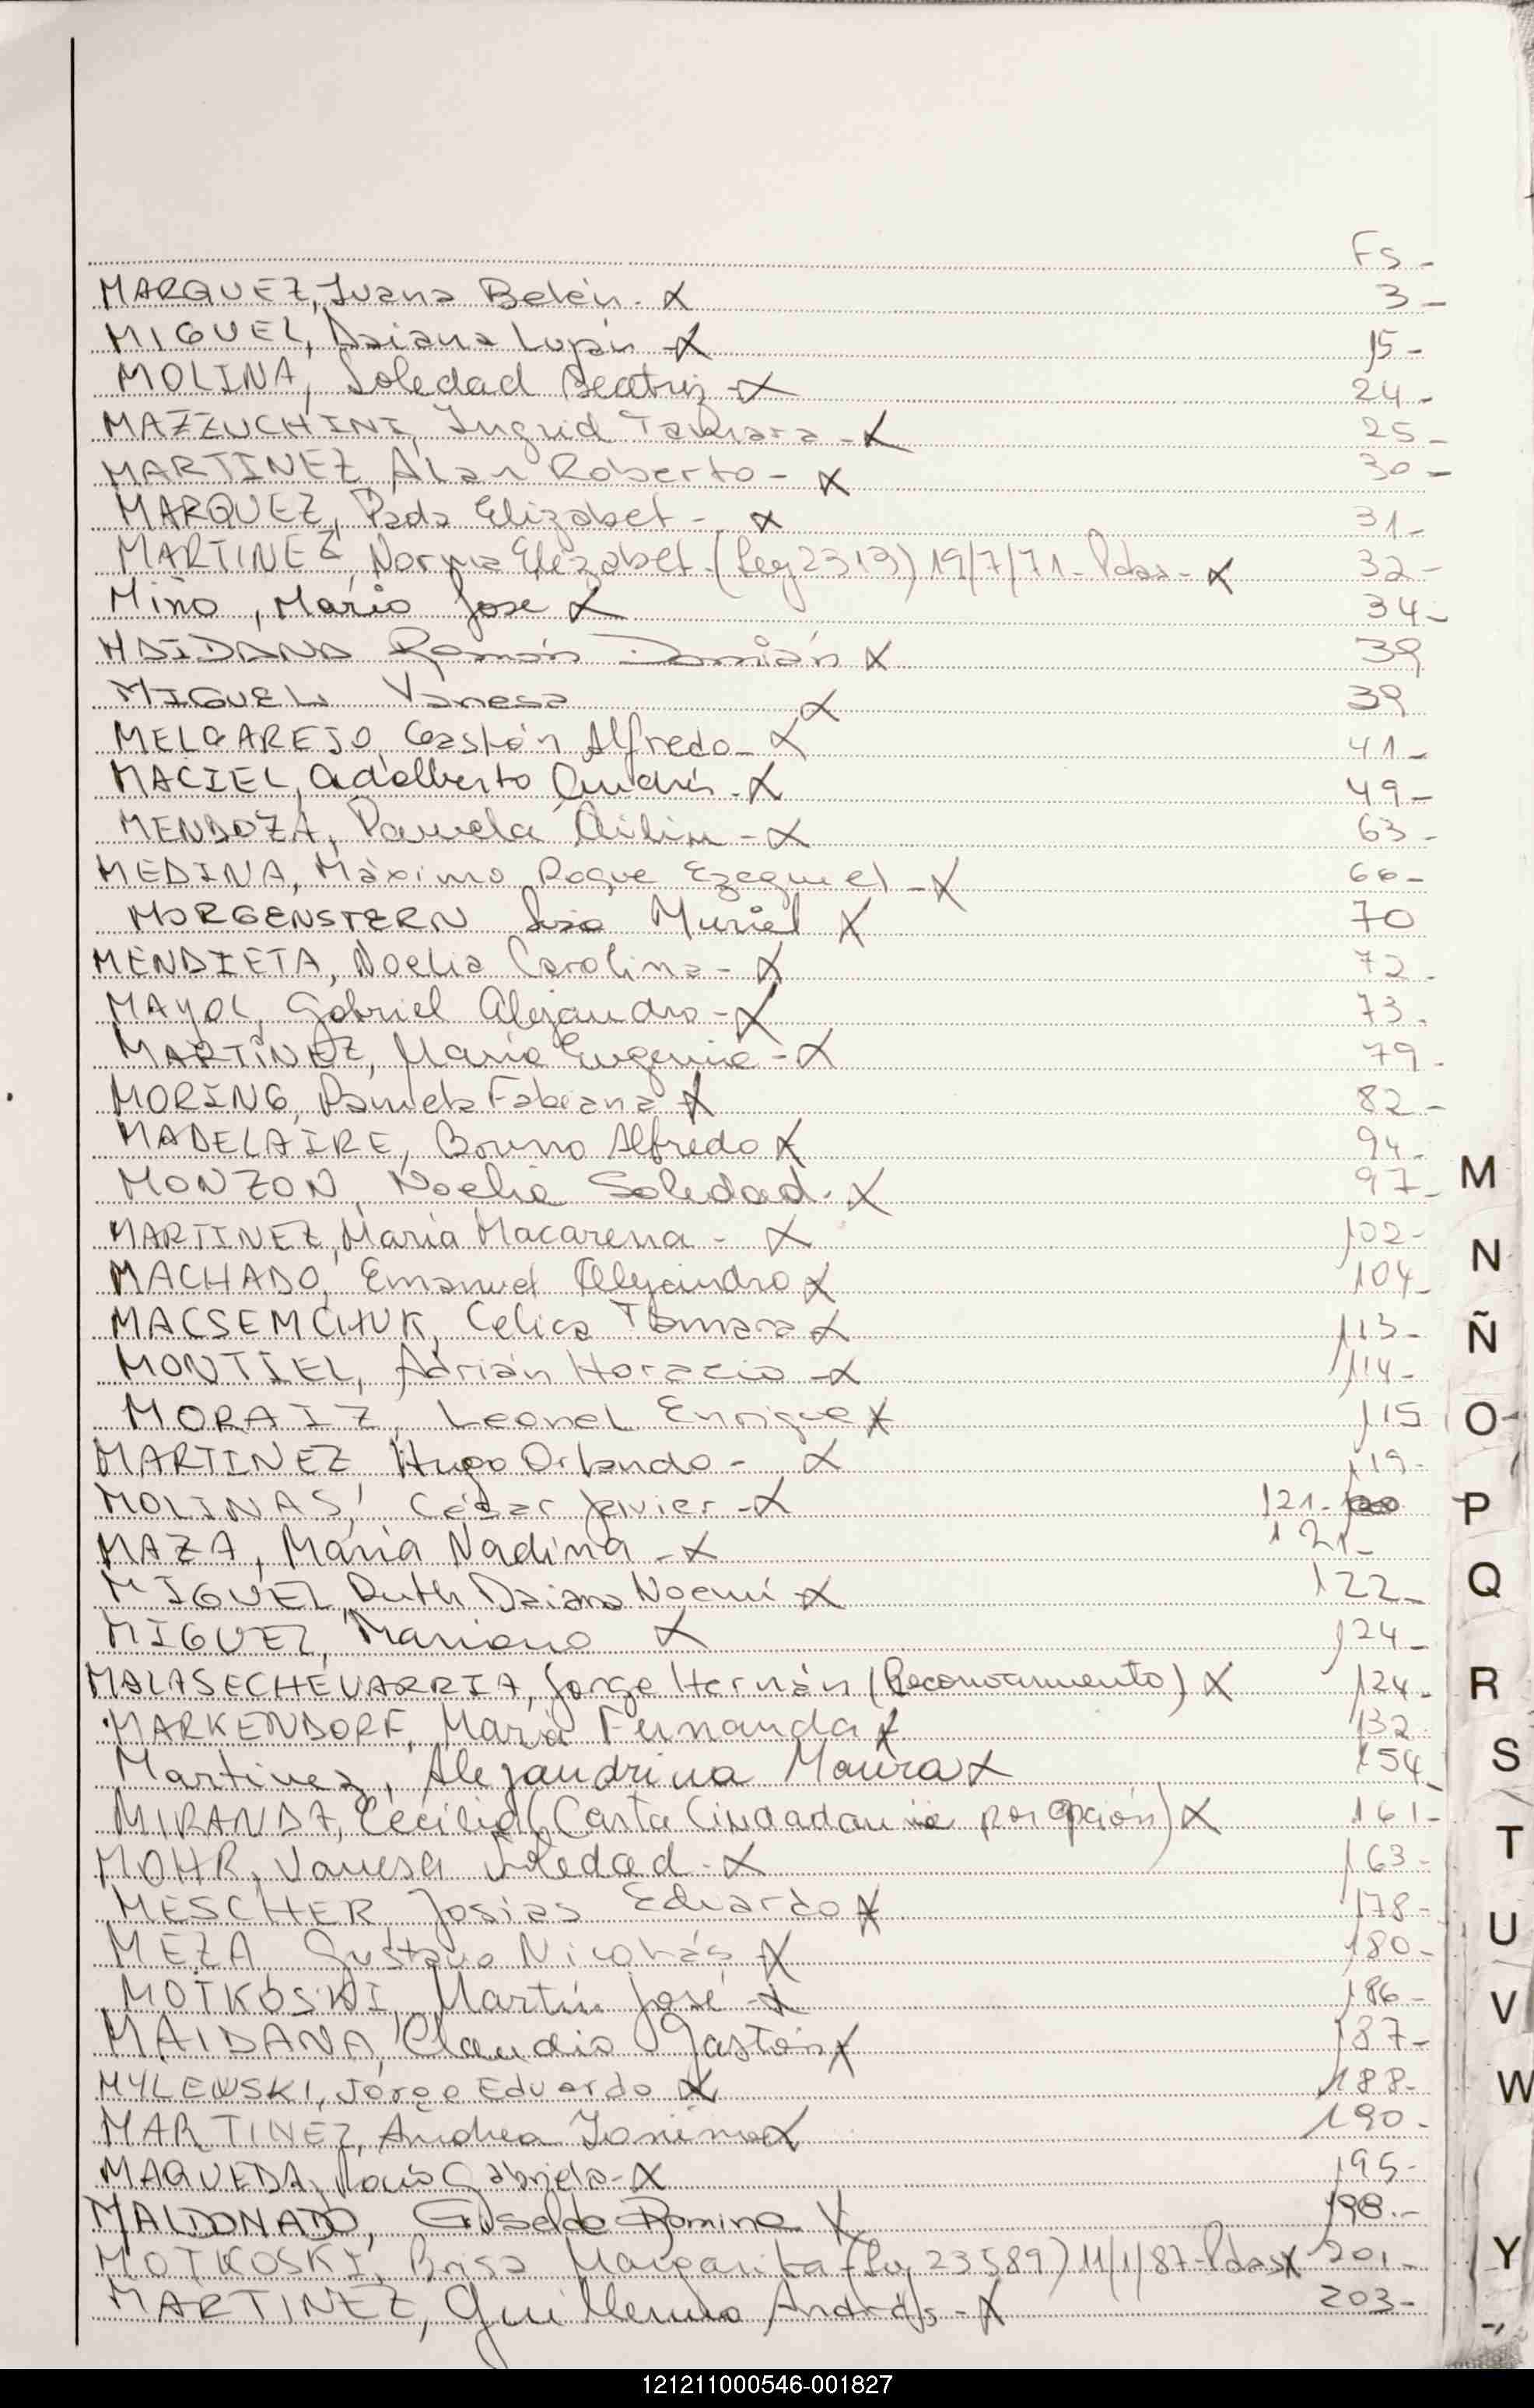 Fs-
MARQUEZ, Juana Belén. X 3-
MIGUEL, Daiana Luján X 15-
MOLINA, Soledad Beatriz X 24-
MAZZUCHINI, Ingrid Tamara - X 25-
MARTINEZ Alan Roberto - X 30-
MARQUEZ, Elizabet - X 31-
MARTINEZ, Norma Elizabet (Ley 2313) 19/7/71 - Pdas - X 32-
Miño, Mario Jose X 34-
MAIDANA Ramón Damián X 39
MIGUEL Vanesa X 39
MELGAREJO, Gastón Alfredo - X 41-
MACIEL, Adalberto Andrés - X 49-
MENDOZA, Pamela Ailin - X 63-
MEDINA, Máximo Roque Ezequiel - X 66-
MORGENSTERN Muriel X 70
MENDIETA, Noelia Carolina - X 72-
MAYOL, Gabriel Alejandro - X 73.
MARTINEZ, Maria Eugenia - X 79-
MORING, Pamela Fabiana X 82-
MADELAIRE, Bruno Alfredo X 94-
MONZON, Noelia Soledad - X 97-
MARTINEZ, Maria Macarena - X 102-
MACHADO, Emanuel Alejandro X 104-
MACSEMCHUK, Celica Tamara X 113-
MONTIEL, Adrián Horacio - X 114-
MORAIZ, Leonel Enrique X 115
MARTINEZ, Hugo Orlando - X 119-
MOLINAS, César Javier - X 121-
MAZA, María Nadina - X 121-
MIGUEL, Ruth Daiana Noemí X 122-
MIGUEL, Mariano X 124-
MALASECHEVARRIA, Jorge Hernán (Reconocimiento) X 124-
MARKENDORF, María Fernanda X 132-
Martinez, Alejandrina Maura X 154-
MIRANDA, Cecilia (Carta Ciudadania por opción) X 161-
MOHR, Vanesa Soledad - X 163-
MESCHER, Josías Eduardo X 178-
MEZA Gustavo Nicolás X 180-
MOTKOSKI, Martín José X 186-
MAIDANA, Claudio Gastón X 187-
MYLEWSKI, Jorge Eduardo X 188-
MARTINEZ, Andrea Yanina X 190-
MAQUEDA, Rocío Gabriela - X 195-
MALDONADO, Giselda Romina X 198.-
MOTKOSKI, Brisa Margarita (Ley 23589) 11/1/87 - Pdas X 201-
MARTINEZ, Guillermo Andrés - X 203-
M
N
Ñ
O
P
Q
R
S
T
U
V
W
Y
121211000546-001827